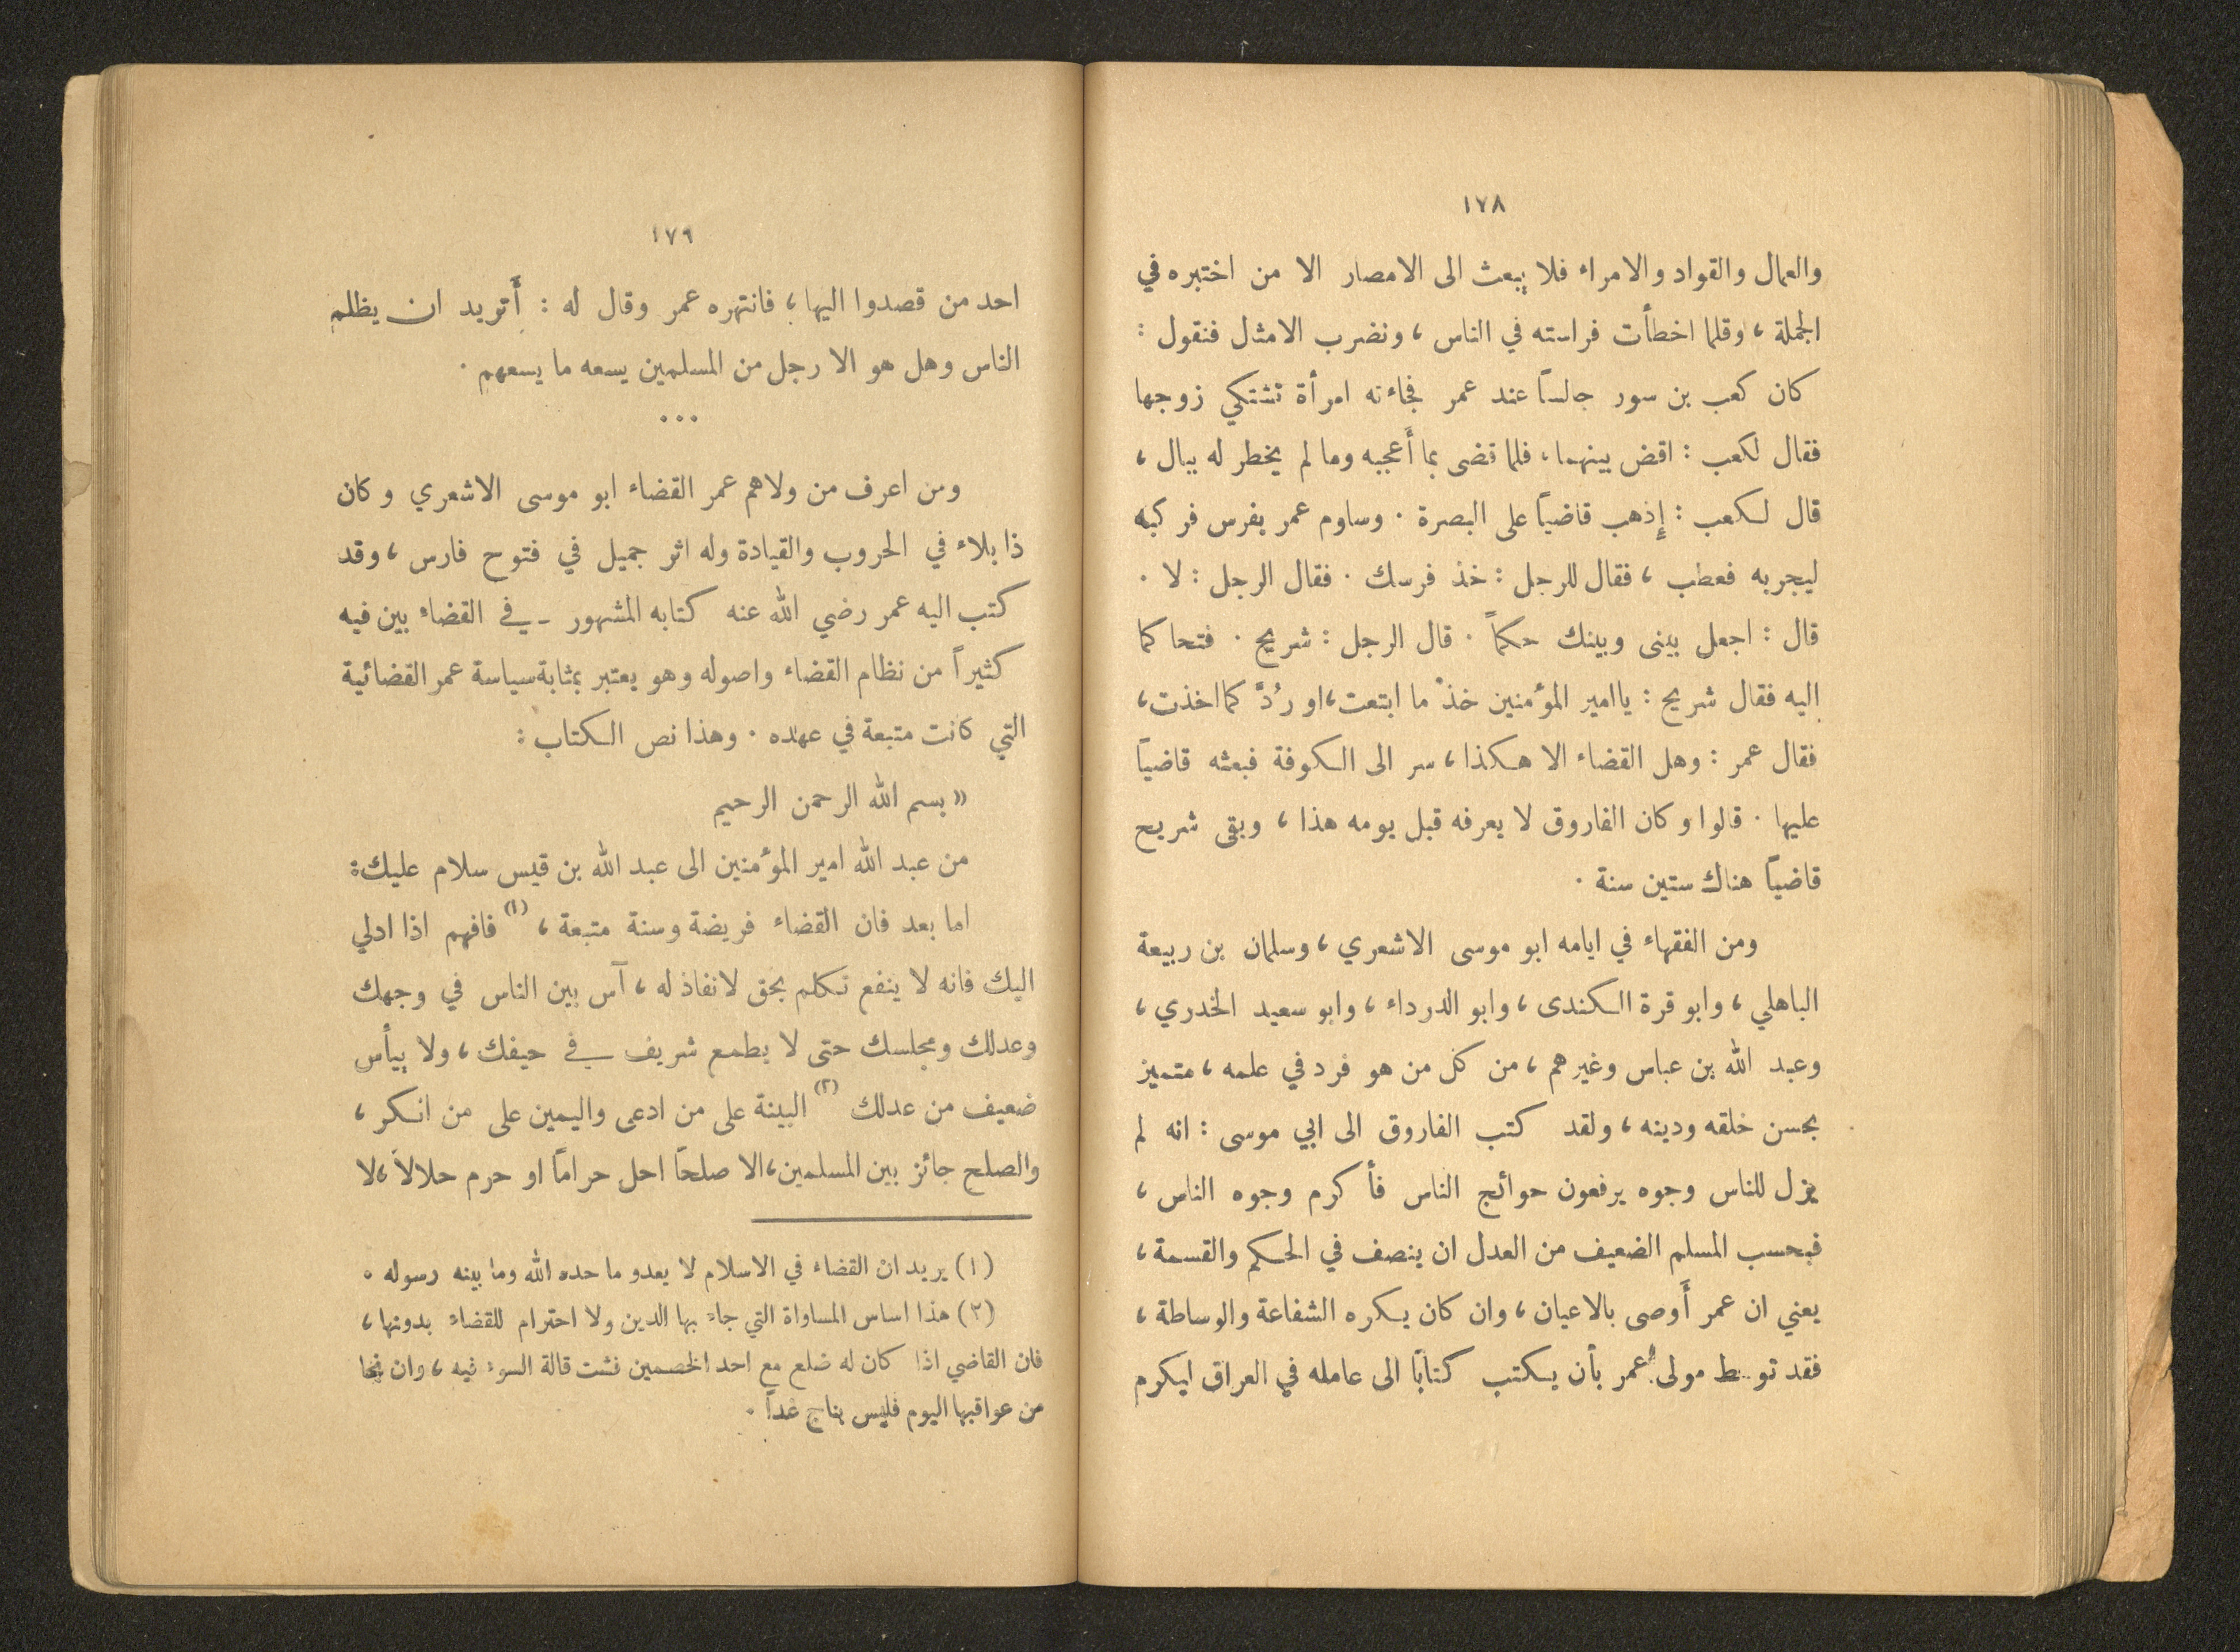 ١٧٨
والعمال والقواد والامراء فلا يبعث الى الامصار الا من اختبره في
الجملة ، وقلما اخطأت فراسته في الناس ، ونضرب الامثل فنقول :
كان كعب بن سور جالساً عند عمر فجاءته امرأة تشتكي زوجها
فقال لكعب : اقض بينهما ، فلما قضى بما أَعجبه وما لم يخطر له ببال ،
قال لكعب : إِذهب قاضياً على البصرة . وساوم عمر بفرس فركبه
ليجربه فعطب ، فقال للرجل : خذ فرسك . فقال الرجل : لا .
قال : اجعل بينى وبينك حكماً . قال الرجل : شريح . فتحاكما
اليه فقال شريح : ياامير المؤمنين خذْ ما ابتعت ، او رُدَّ كما اخذت ،
فقال عمر : وهل القضاء الا هكذا ، سر الى الكوفة فبعثه قاضياً
عليها . قالوا وكان الفاروق لا يعرفه قبل يومه هذا ، وبقى شريح
قاضياً هناك ستين سنة .
ومن الفقهاء في ايامه ابو موسى الاشعري ، وسلمان بن ربيعة
الباهلي ، وابو قرة الكندى ، وابو الدرداء ، وابو سعيد الخدري ،
وعبد الله بن عباس وغيرهم ، من كل من هو فرد في علمه ، متميز
بحسن خلقه ودينه ، ولقد كتب الفاروق الى ابي موسى : انه لم
يزل للناس وجوه يرفعون حوائج الناس فأكرم وجوه الناس ،
فبحسب المسلم الضعيف من العدل ان ينصف في الحكم والقسمة ،
يعني ان عمر أَوصى بالاعيان ، وان كان يكره الشفاعة والوساطة ،
فقد توسط مولى عمر بأن يكتب كتاباً الى عامله في العراق ليكرم
١٧٩
احد من قصدوا اليها ، فانتهره عمر وقال له : أَتريد ان يظلم
الناس وهل هو الا رجل من المسلمين يسعه ما يسعهم .
...
ومن اعرف من ولاهم عمر القضاء ابو موسى الاشعري وكان
ذا بلاء في الحروب والقيادة وله اثر جميل في فتوح فارس ، وقد
كتب اليه عمر رضي الله عنه كتابه المشهور في القضاء بين فيه
كثيراً من نظام القضاء واصوله وهو يعتبر بمثابة سياسة عمر القضائية
التي كانت متبعة في عهده . وهذا نص الكتاب :
« بسم الله الرحمن الرحيم
من عبد الله امير المؤمنين الى عبد الله بن قيس سلام عليك :
اما بعد فان القضاء فريضة وسنة متبعة ، (١) فافهم اذا ادلي
اليك فانه لا ينفع تكلم بحق لا نفاذ له ، آس بين الناس في وجهك
وعدلك ومجلسك حتى لا يطمع شريف في حيفك ، ولا ييأس
ضعيف من عدلك (٢) البينة على من ادعى واليمين على من انكر ،
والصلح جائز بين المسلمين ، الا صلحاً احل حراماً او حرم حلالاً ، لا
(١) يريد ان القضاء في الاسلام لا يعدو ما حده الله وما بينه رسوله .
(٢) هذا اساس المساواة التي جاء بها الدين ولا احترام للقضاء بدونها ،
فان القاضي اذا كان له ضلع مع احد الخصمين فشت قالة السوء فيه ، وان نجا
من عواقبها اليوم فليس بناج غداً .